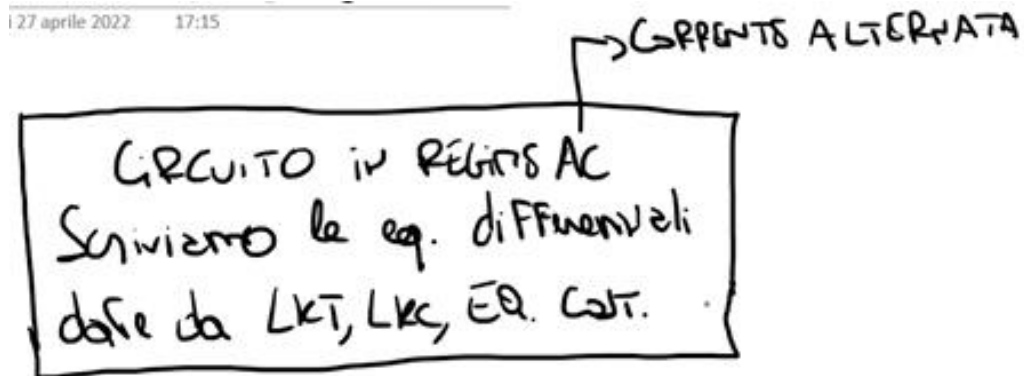 27 aprile 2022 17:15
CORRENTE ALTERNATA
CIRCUITO in REGIME AC
Scriviamo le eq. differenziali
date da LKT, LKC, EQ. COST.